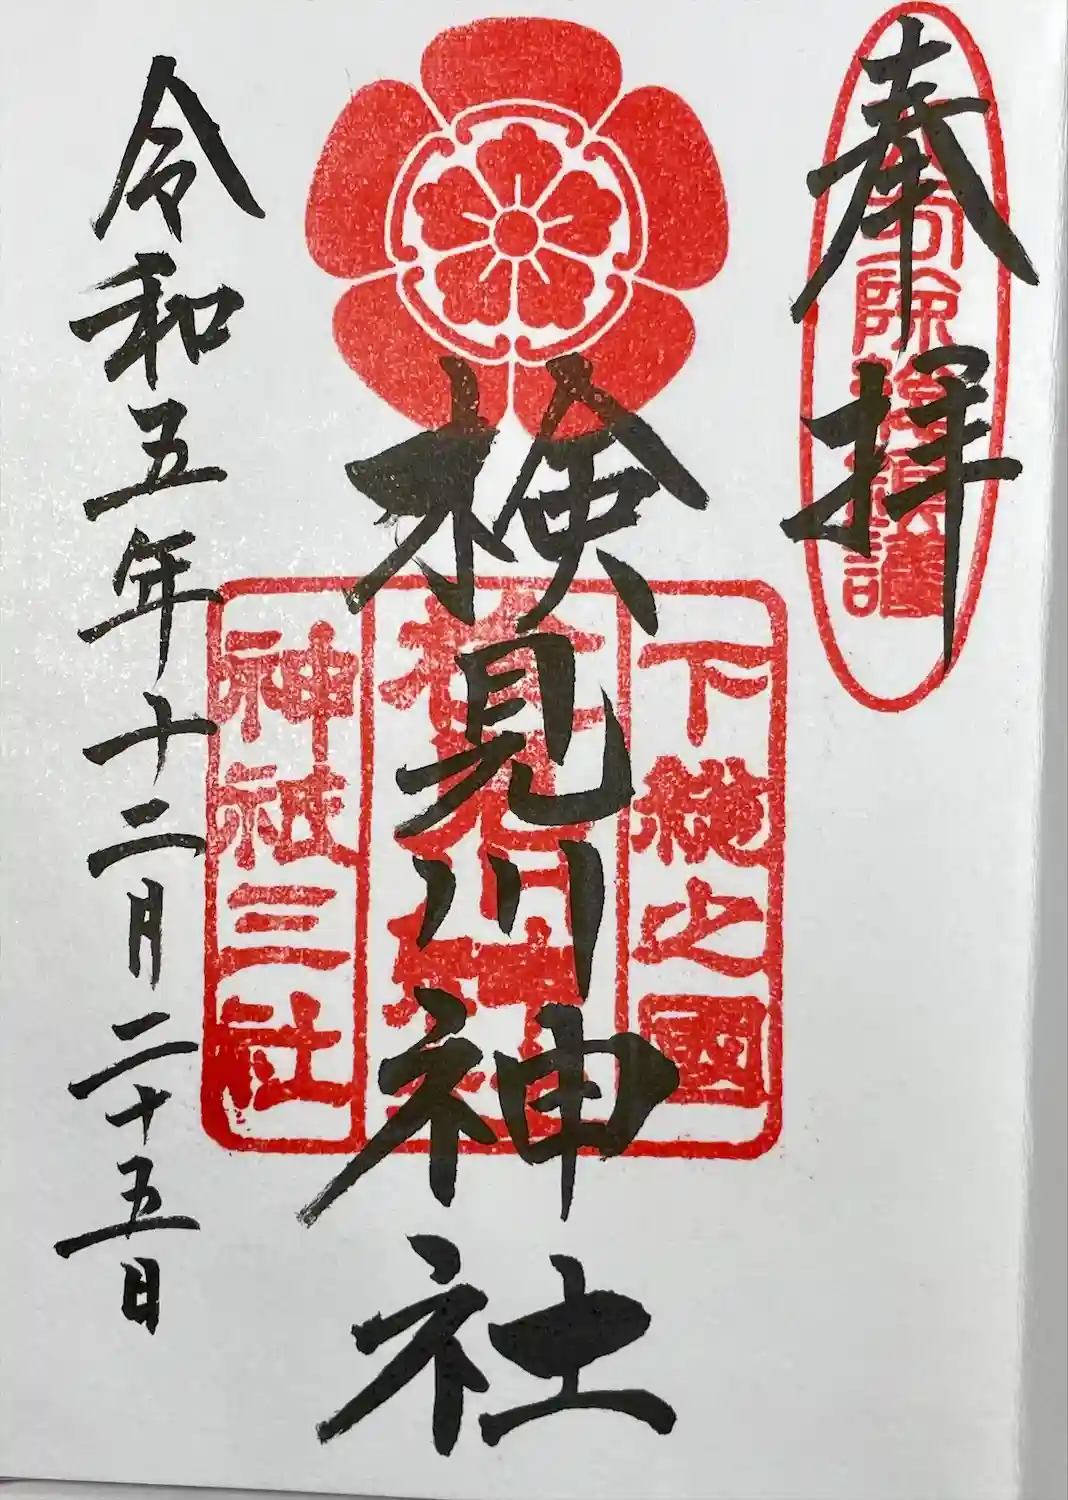 奉拝
下總之國
検見川神社
神社三社
令和五年十二月二十五日